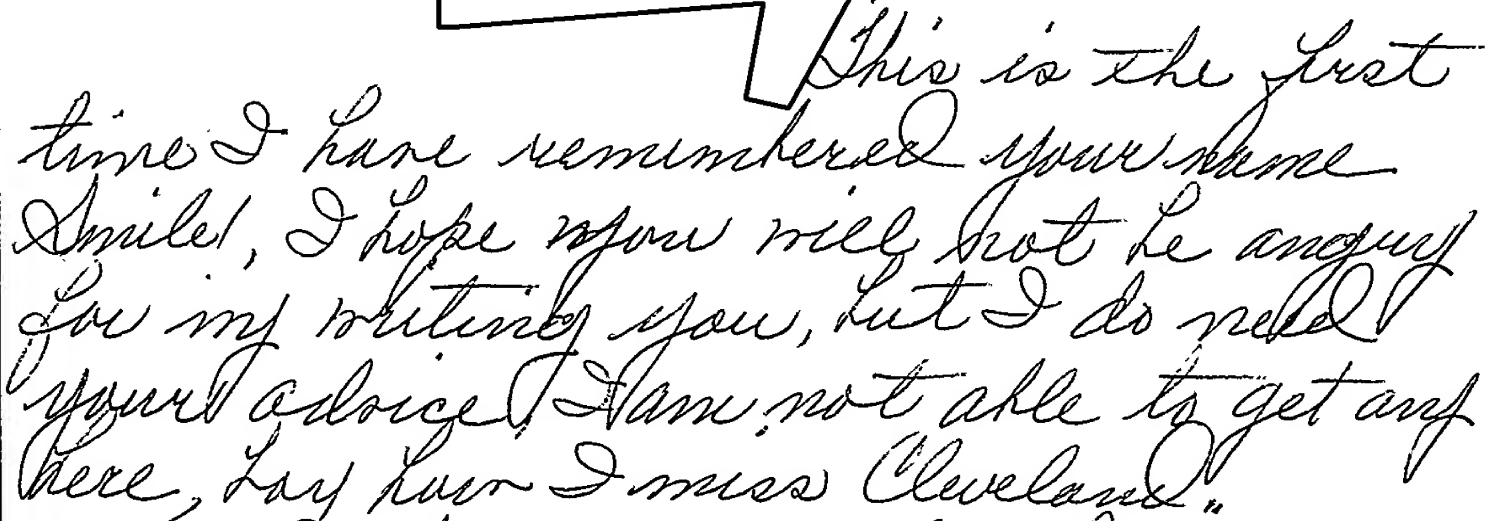 This is the first
time I have remembered your name
Smile!, I hope you will not be angry
for my writing you, but I do need
your advice, I am not able to get any
here, boy how I miss Cleveland..